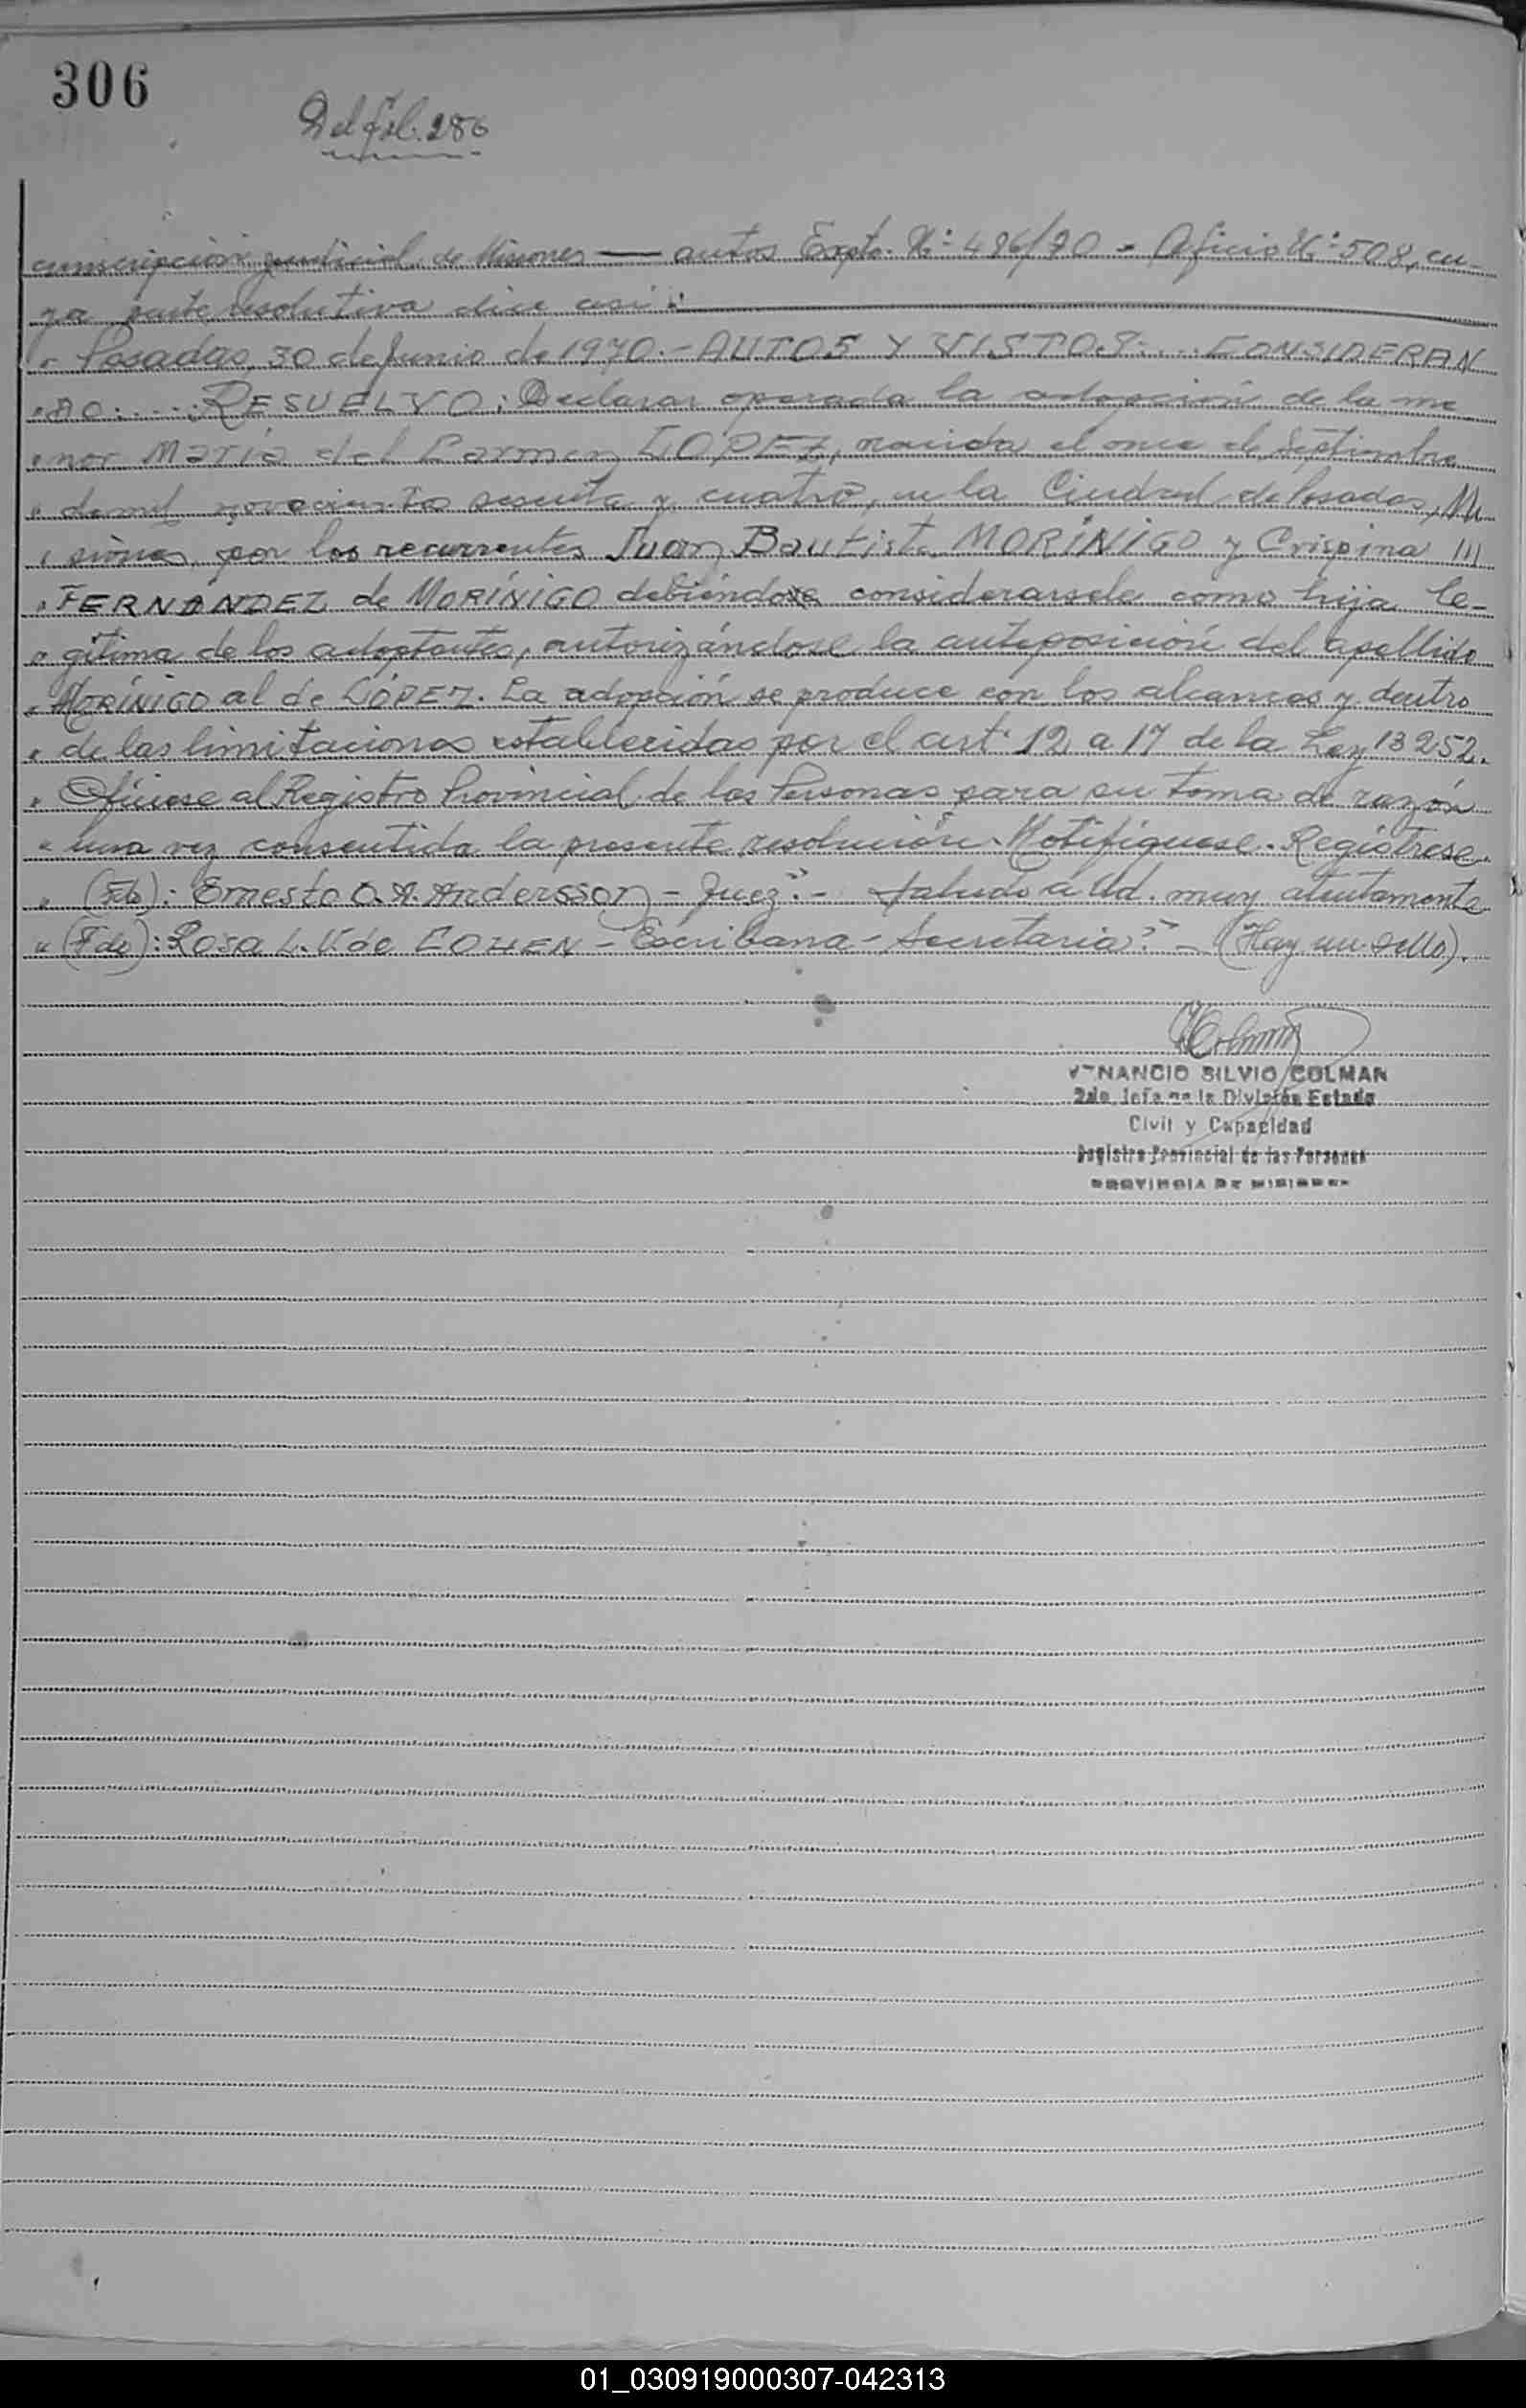 306
Del fol. 286
cunscripción judicial de Misiones — autos Expte. Nº 486/70 - Oficio Nº 508, cu-
ya parte resolutiva dice así: "
" Posadas, 30 de Junio de 1970.- AUTOS Y VISTOS:.... CONSIDERAN
" DO:....: RESUELVO: Declarar operada la adopción de la me
" nor María del Carmen LOPEZ, nacida el once de Septiembre
" de mil novecientos sesenta y cuatro, en la Ciudad de Posadas, Mi
" siones, por los recurrentes Juan Bautista MORÍNIGO y Crispina III
" FERNÁNDEZ de MORÍNIGO debiéndose considerarsele como hija le-
" gítima de los adoptantes, autorizándose la anteposición del apellido
" MORÍNIGO al de LÓPEZ. La adopción se produce con los alcances y dentro
" de las limitaciones establecidas por el art. 12 a 17 de la Ley 13252.
" Ofíciese al Registro Provincial de las Personas para su toma de razón
" una vez consentida la presente resolución. Notifíquese. Regístrese.
" (Fdo): Ernesto O. A. Andersson - Juez".- Saludo a Ud. muy atentamente
" (Fdo): Rosa L. V. de COHEN - Escribana - Secretaria".- (Hay un sello).
VENANCIO SILVIO COLMAN
2do. Jefe de la División Estado
Civil y Capacidad
Registro Provincial de las Personas
PROVINCIA DE MISIONES
01_030919000307-042313